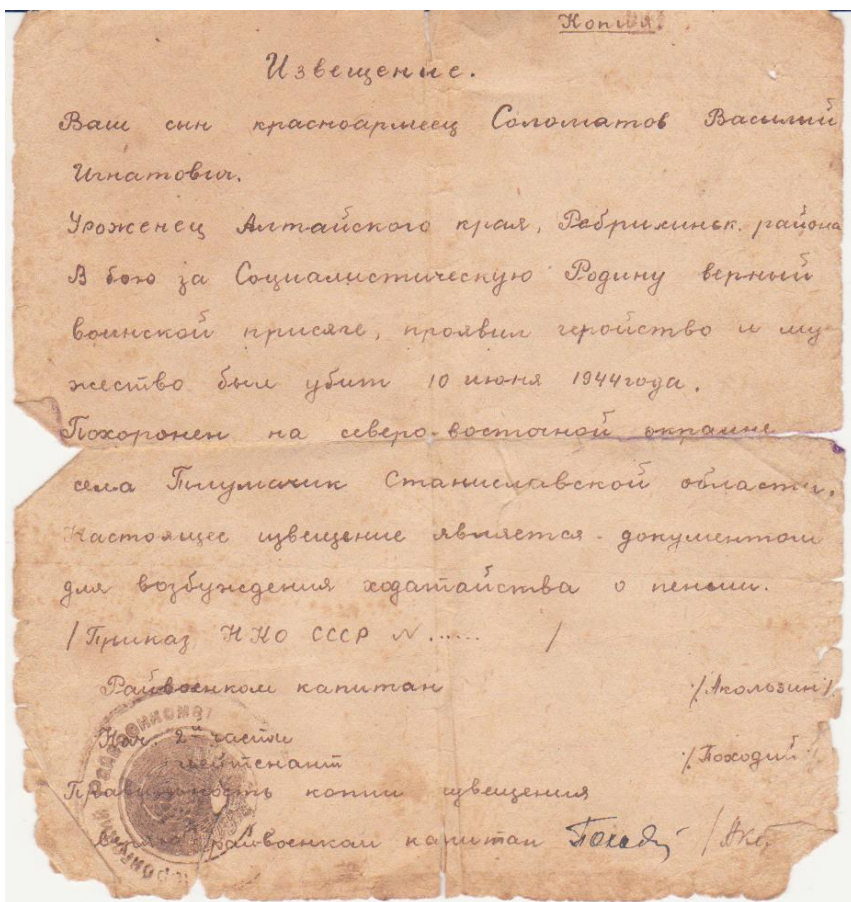 Копия
Извещение.
Ваш сын красноармеец Соломатов Василий
Игнатович.
Уроженец Алтайского края, Ребрихинск. района
В бою за Социалистическую Родину верный
воинской присяге, проявил геройство и му
жество был убит 10 июня 1944 года.
Похоронен на северо-восточной окраине
села Тлумачик Станиславской области.
Настоящее извещение является - документом
для возбуждения ходатайства о пенсии.
/ Приказ НКО СССР № ...... /
Райвоенком капитан /Аколозин/
Нач. 2й части
лейтенант /Походий/
Правильность копии извещения
райвоенком капитан